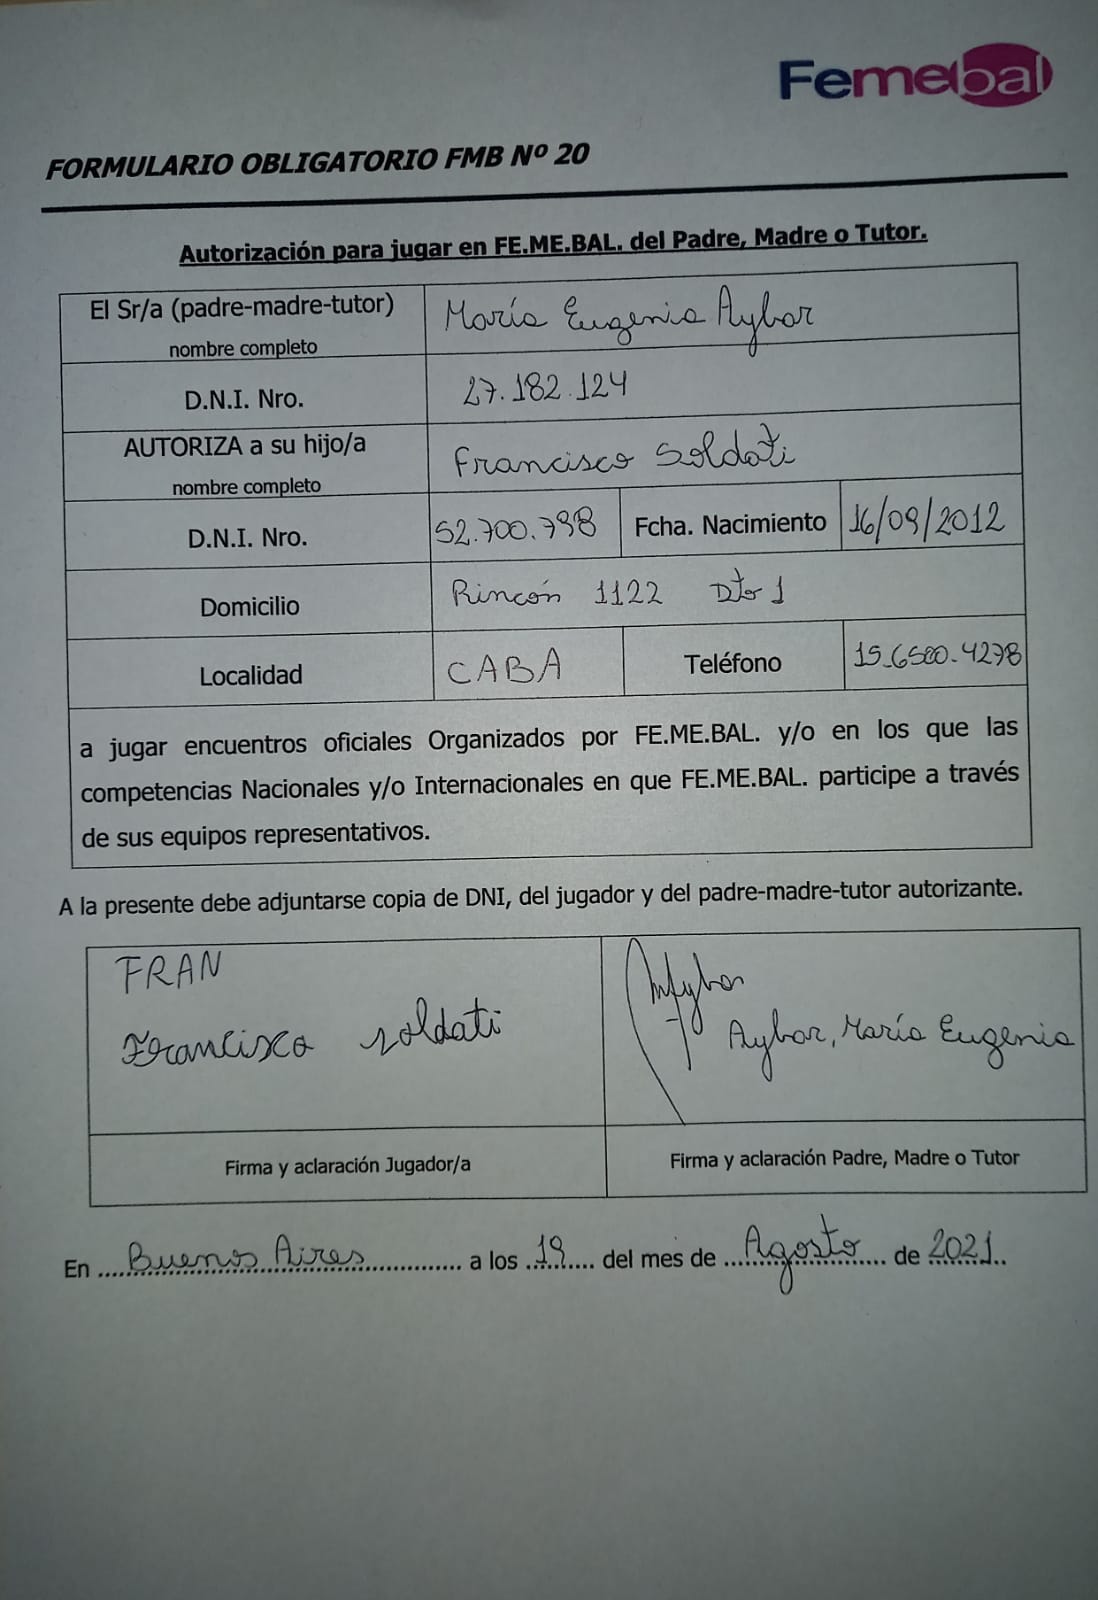 Femebal
FORMULARIO OBLIGATORIO FMB Nº 20
Autorización para jugar en FE.ME.BAL. del Padre, Madre o Tutor.
El Sr/a (padre-madre-tutor) María Eugenia Aybar
nombre completo
D.N.I. Nro. 27.182.124
AUTORIZA a su hijo/a Francisco Soldati
nombre completo
D.N.I. Nro. 52.700.798 Fcha. Nacimiento 16/09/2012
Domicilio Rincón 1122 Dto 1
Localidad CABA Teléfono 15-6580-4278
a jugar encuentros oficiales Organizados por FE.ME.BAL. y/o en los que las
competencias Nacionales y/o Internacionales en que FE.ME.BAL. participe a través
de sus equipos representativos.
A la presente debe adjuntarse copia de DNI, del jugador y del padre-madre-tutor autorizante.
FRAN
Francisco soldati
Aybar, María Eugenia
Firma y aclaración Jugador/a Firma y aclaración Padre, Madre o Tutor
En Buenos Aires a los 19 del mes de Agosto de 2021